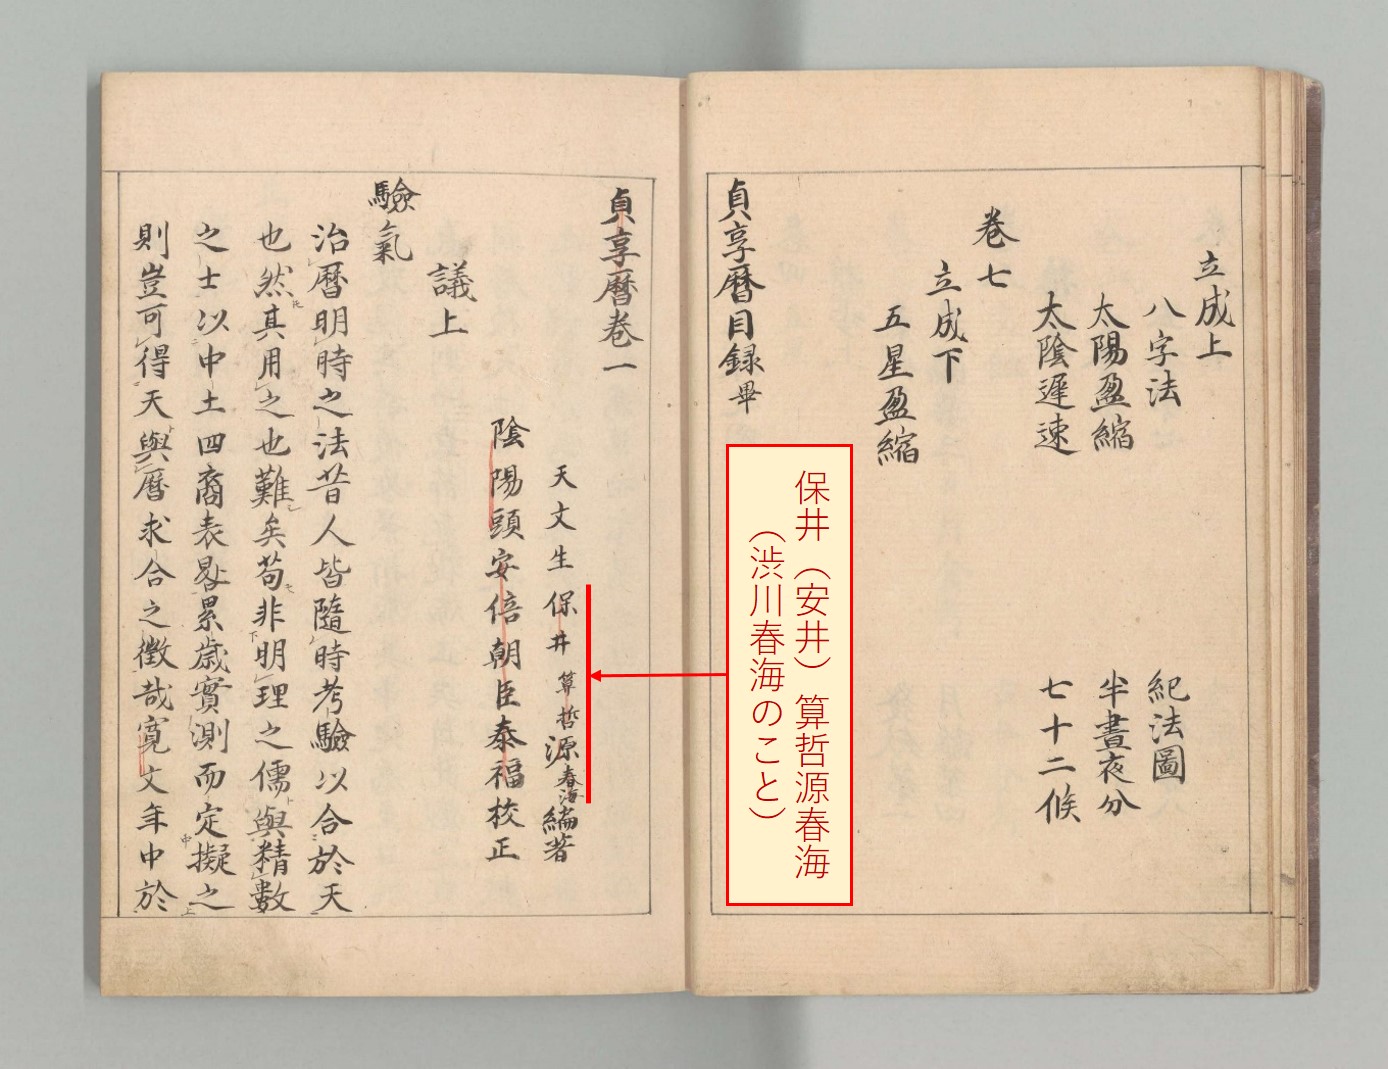 立成上
八字法 紀法圖
太陽盈縮 半晝夜分
太陰遲速 七十二候
卷七
立成下
五星盈縮
貞享暦目録畢
保井（安井）算哲源春海
（渋川春海のこと）
貞享暦卷一
天文生保井算哲源春海編著
陰陽頭安倍朝臣泰福校正
議上
驗氣
治暦明時之法昔人皆隨時考驗以合於天
也然其用之也難矣苟非明理之儒與精數
之士以中土四裔表晷累歳實測而定擬之
則豈可得天與暦求合之徴哉寛文年中於